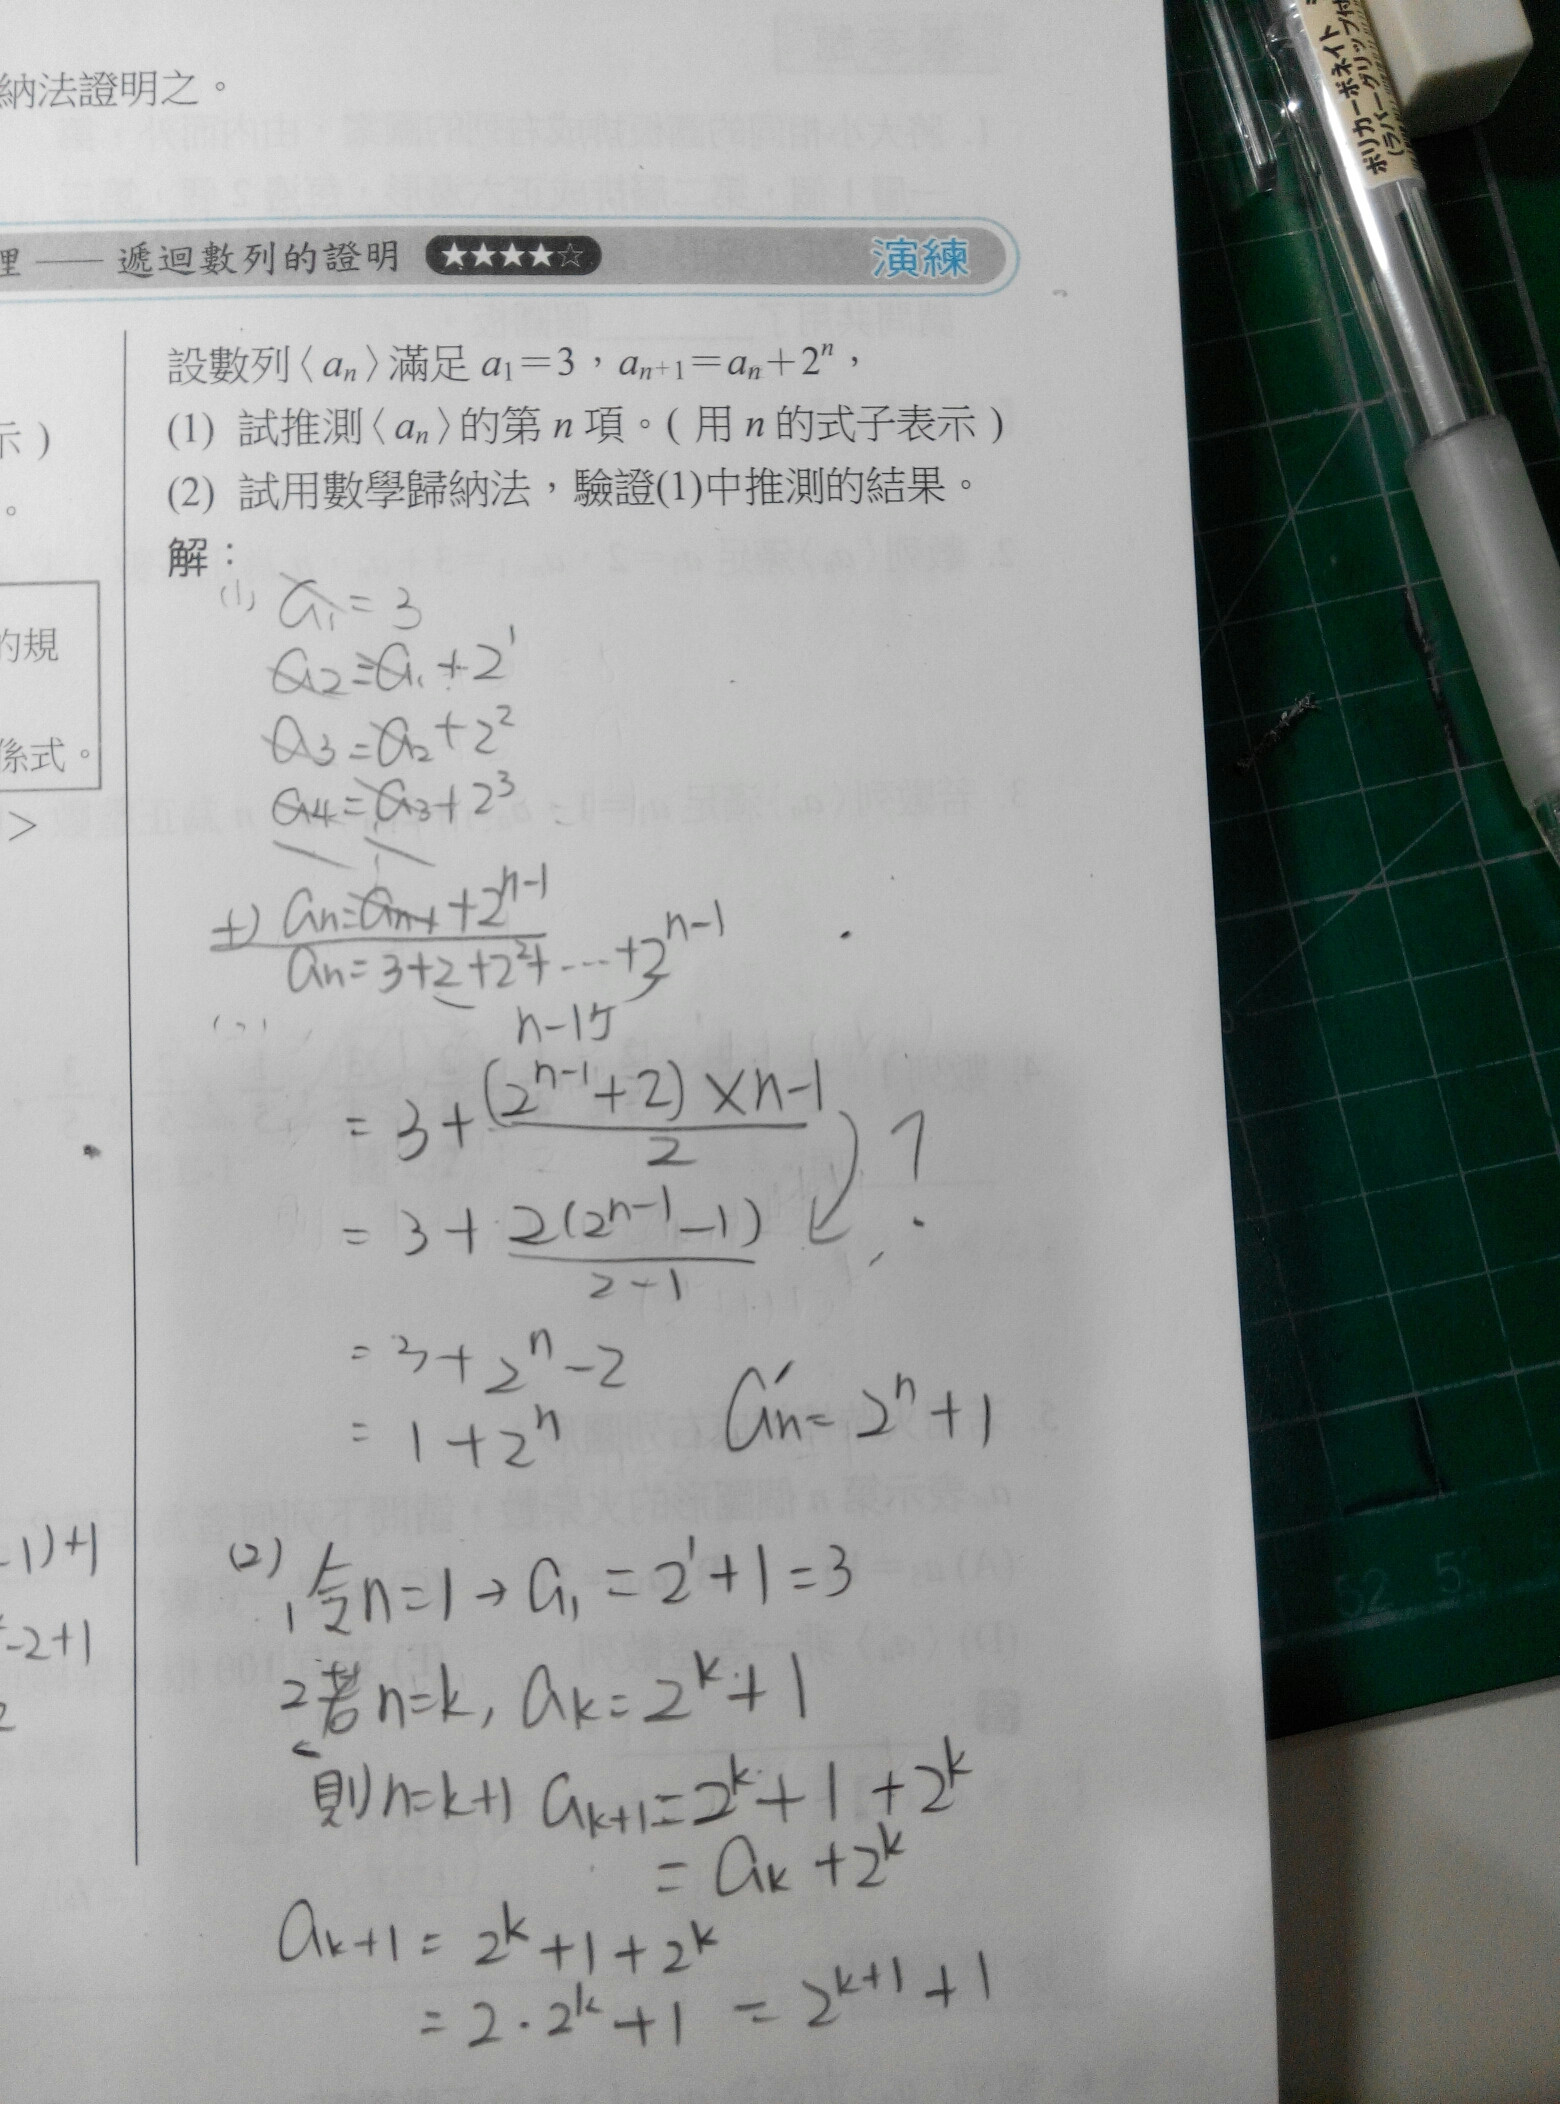 納法證明之。
理 —— 遞迴數列的證明 ★★★★☆ 演練
設數列〈an〉滿足 a1=3，an+1=an+2ⁿ，
(1) 試推測〈an〉的第 n 項。( 用 n 的式子表示 )
(2) 試用數學歸納法，驗證(1)中推測的結果。
解：
(1) a1=3
a2=a1+2¹
a3=a2+2²
a4=a3+2³
+) an=an-1+2ⁿ⁻¹
an=3+2+2²+…+2ⁿ⁻¹
=3+(2ⁿ⁻¹+2)×n-1/2
?
=3+2(2ⁿ⁻¹-1)/2-1
=3+2ⁿ-2
=1+2ⁿ
an=2ⁿ+1
(2) 1 令n=1→a1=2¹+1=3
2 若n=k, ak=2ᵏ+1
則n=k+1 ak+1=2ᵏ+1+2ᵏ
=ak+2ᵏ
ak+1=2ᵏ+1+2ᵏ
=2·2ᵏ+1=2ᵏ⁺¹+1
示 )
。
的規
係式。
>
-1)+1
-2+1
2
ポリカーボネイト
(ラバーグリップ付
52